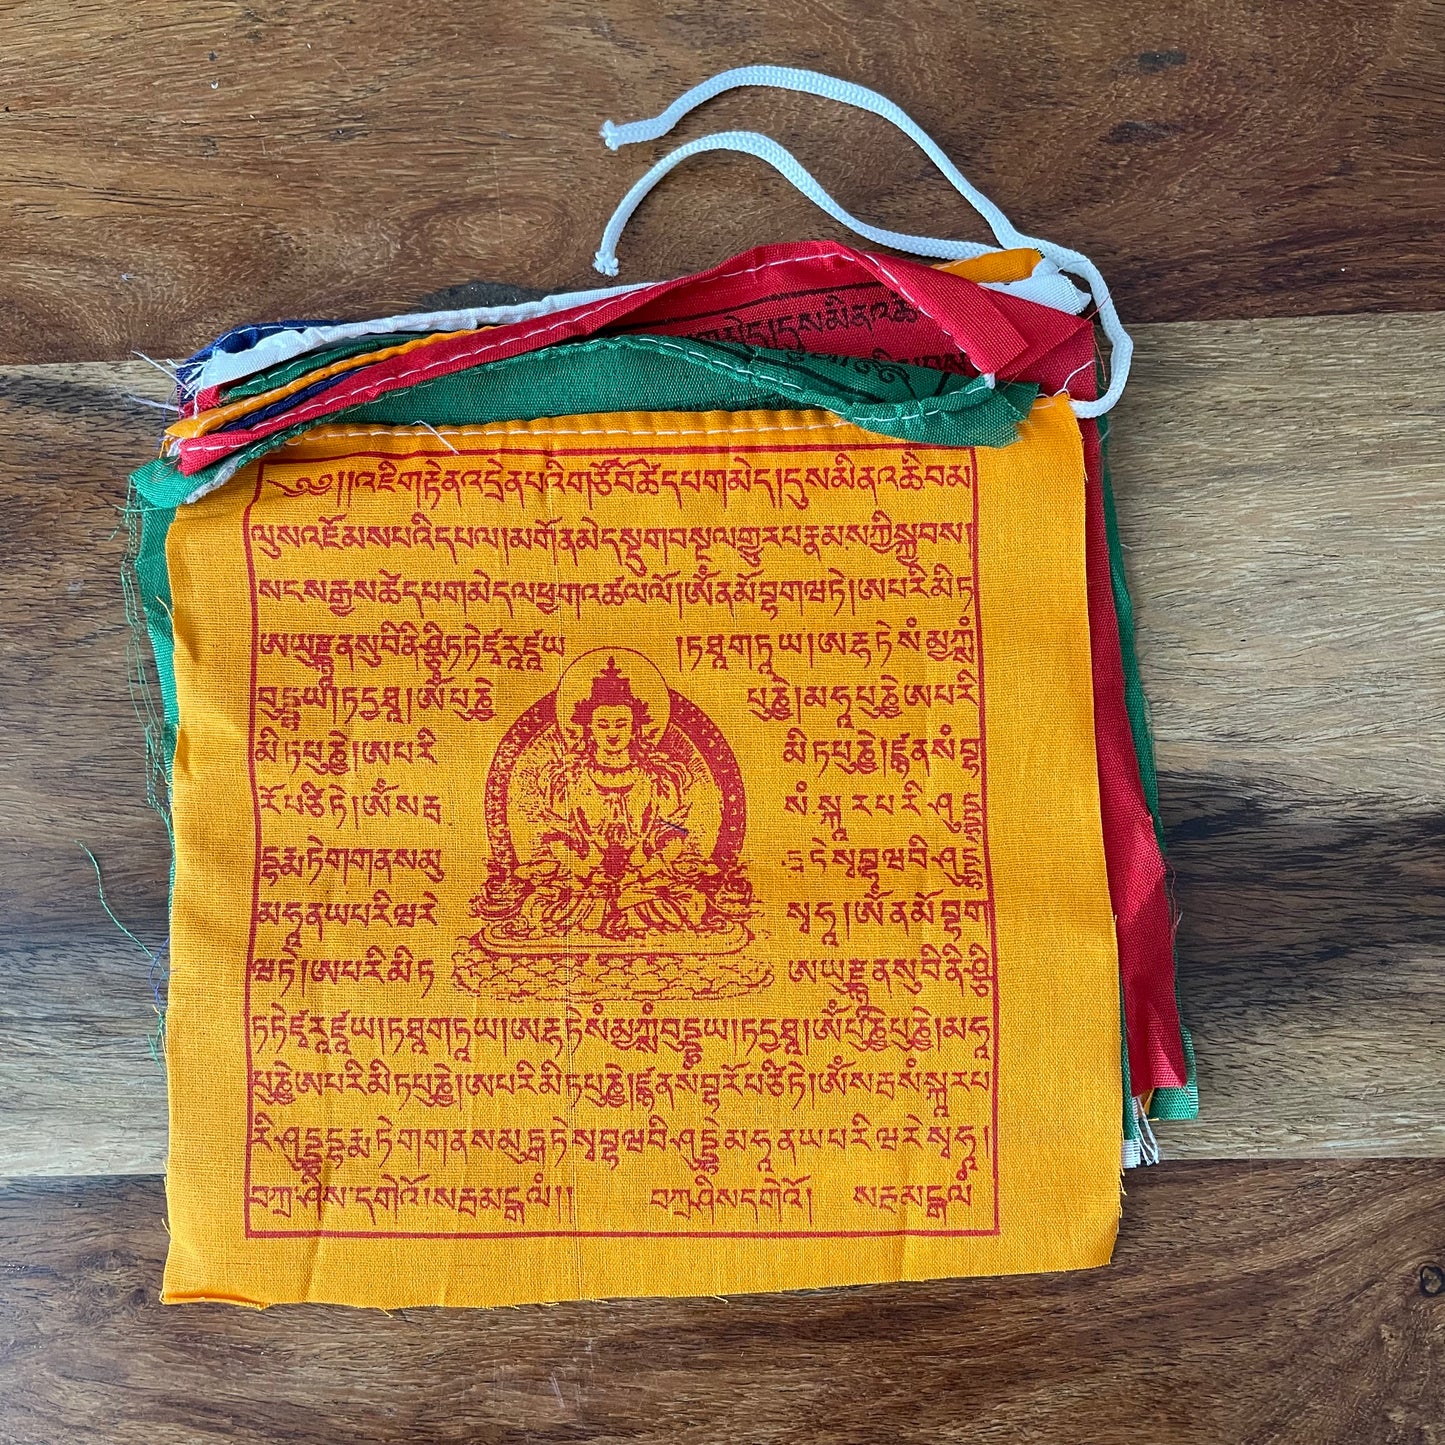 ༄༅།།འཇིག་རྟེན་འདྲེན་པའི་གཙོ་བོ་ཚེ་དཔག་མེད།དུས་མིན་འཆི་བ་མ་
ལུས་འཇོམས་པའི་དཔལ།མགོན་མེད་སྡུག་བསྔལ་གྱུར་པ་རྣམས་ཀྱི་སྐྱབས།
སངས་རྒྱས་ཚེ་དཔག་མེད་ལ་ཕྱག་འཚལ་ལོ།ཨོཾ་ན་མོ་བྷ་ག་ཝ་ཏེ།ཨ་པ་རི་མི་ཏ་
ཨ་ཡུརྫྙཱ་ན་སུ་བི་ནི་ཤྩི་ཏ་ཏེ་ཛོ་རཱ་ཛཱ་ཡ །ཏ་ཐཱ་ག་ཏཱ་ཡ།ཨརྷ་ཏེ་སཾ་མྱཀྶཾ་
བུདྡྷཱ་ཡ།ཏདྱ་ཐཱ།ཨོཾ་པུཎྱེ་ པུཎྱེ།མ་ཧཱ་པུཎྱེ་ཨ་པ་རི་
མི་ཏ་པུཎྱེ།ཨ་པ་རི་ མི་ཏ་པུཎྱེ།ཛྙཱ་ན་སཾ་བྷཱ་
རོ་པ་ཙི་ཏེ།ཨོཾ་སརྦ་ སཾ་སྐཱ་ར་པ་རི་ཤུདྡྷ་
དྷརྨ་ཏེ་ག་ག་ན་ས་མུ་ དྒ་ཏེ་སྭ་བྷཱ་ཝ་བི་ཤུདྡྷེ་
མ་ཧཱ་ན་ཡ་པ་རི་ཝ་རེ་ སྭཱ་ཧཱ།ཨོཾ་ན་མོ་བྷ་ག་
ཝ་ཏེ།ཨ་པ་རི་མི་ཏ་ ཨ་ཡུརྫྙཱ་ན་སུ་བི་ནི་ཤྩི་
ཏ་ཏེ་ཛོ་རཱ་ཛཱ་ཡ།ཏ་ཐཱ་ག་ཏཱ་ཡ།ཨརྷ་ཏེ་སཾ་མྱཀྶཾ་བུདྡྷཱ་ཡ།ཏདྱ་ཐཱ།ཨོཾ་པུཎྱེ་པུཎྱེ།མ་ཧཱ་
པུཎྱེ་ཨ་པ་རི་མི་ཏ་པུཎྱེ།ཨ་པ་རི་མི་ཏ་པུཎྱེ།ཛྙཱ་ན་སཾ་བྷཱ་རོ་པ་ཙི་ཏེ།ཨོཾ་སརྦ་སཾ་སྐཱ་ར་པ་
རི་ཤུདྡྷ་དྷརྨ་ཏེ་ག་ག་ན་ས་མུདྒ་ཏེ་སྭ་བྷཱ་ཝ་བི་ཤུདྡྷེ་མ་ཧཱ་ན་ཡ་པ་རི་ཝ་རེ་སྭཱ་ཧཱ།
བཀྲ་ཤིས་དགེའོ།སརྦ་མངྒ་ལཾ།། བཀྲ་ཤིས་དགེའོ། སརྦ་མངྒ་ལཾ